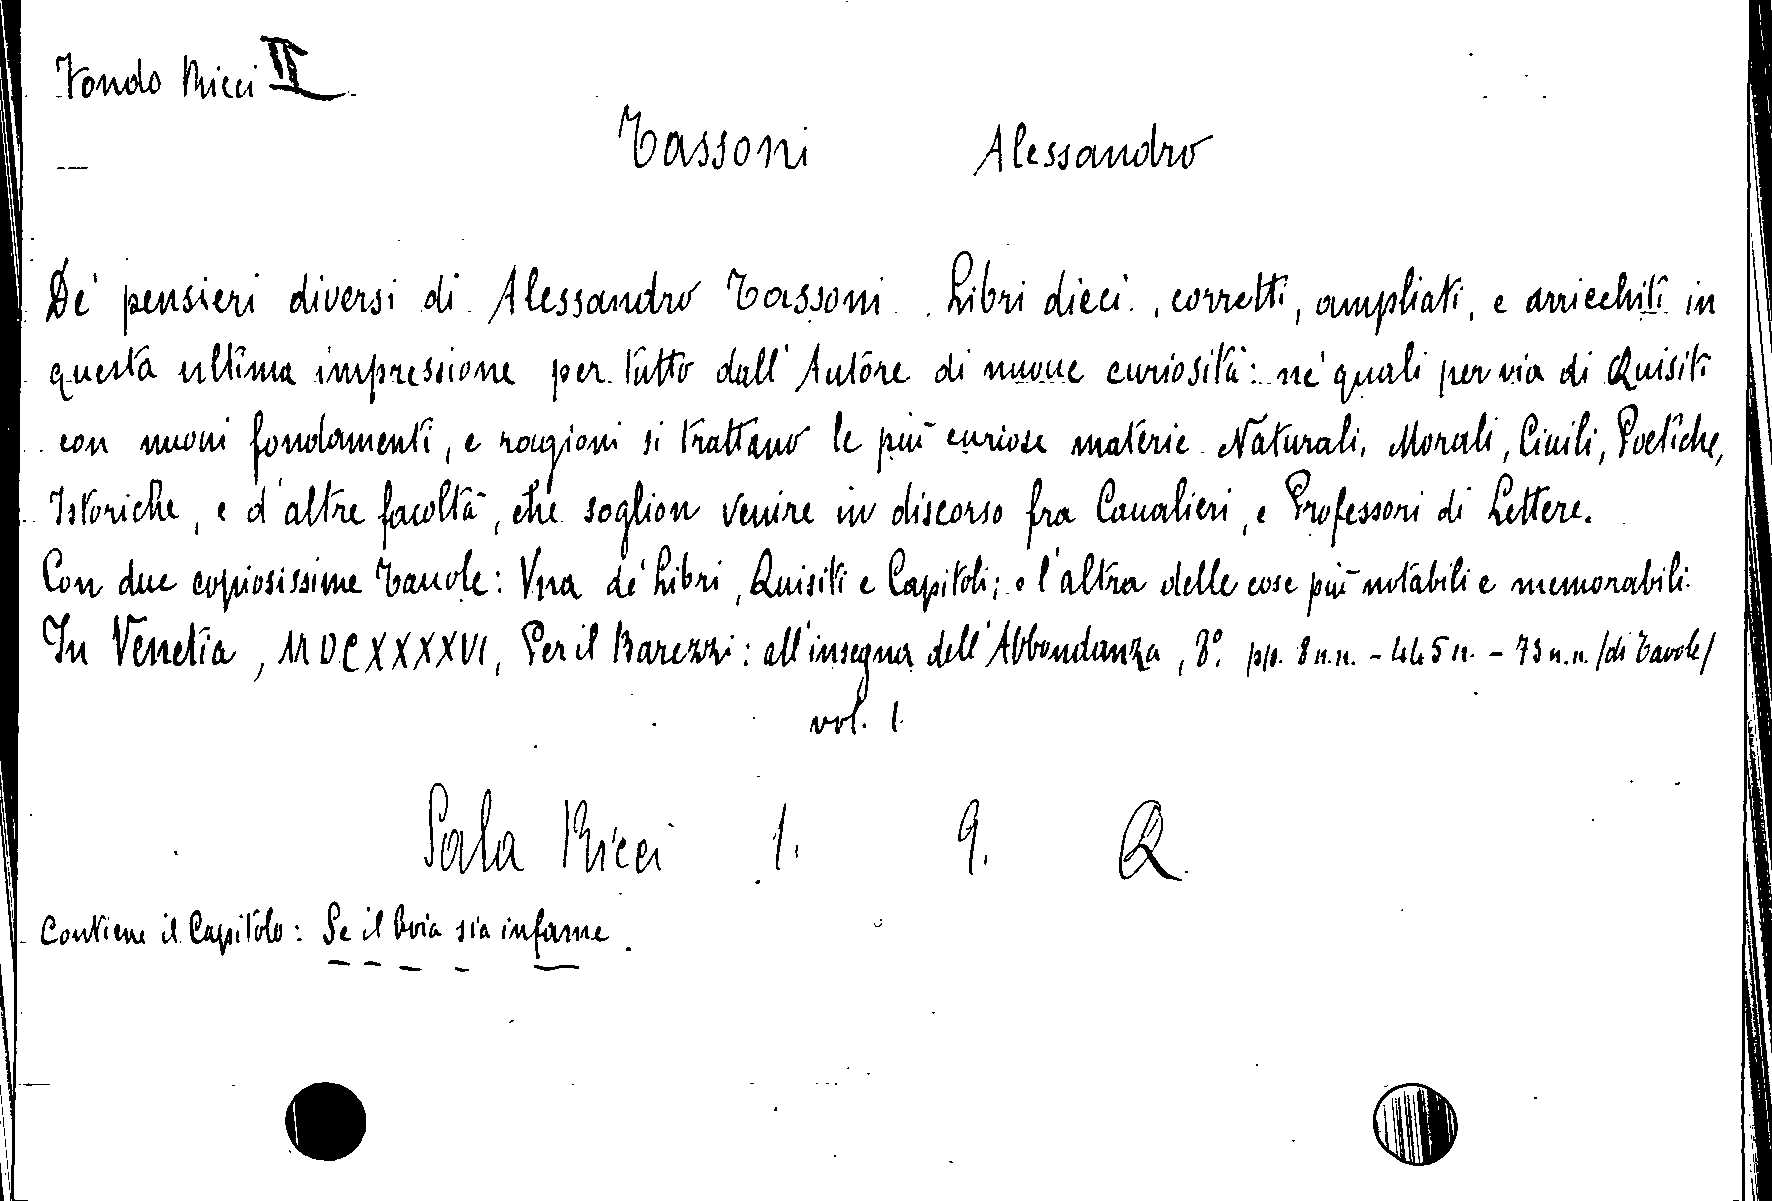 Fondo Ricci II
Tassoni Alessandro
De' pensieri diversi di Alessandro Tassoni. Libri dieci, corretti, ampliati, e arricchiti in
questa ultima impressione per tutto dall'Autore di nuoue curiosità: ne' quali per via di Quisiti
con nuoui fondamenti, e ragioni si trattano le più curiose materie Naturali, Morali, Ciuili, Poetiche,
Istoriche, e d'altre facoltà, che soglion venire in discorso fra Caualieri, e Professori di Lettere.
Con due copiosissime Tauole: Vna de' Libri, Quisiti e Capitoli; e l'altra delle cose più notabili e memorabili.
In Venetia, MDCXXXXVI, Per il Barezzi: all'insegna dell'Abbondanza, 8°. pp. 8 n.n. - 445 n. - 73 n.n. /di Tavole/
vol. 1
Sala Ricci 1. 9. Q.
Contiene il Capitolo: Se il boia sia infame.